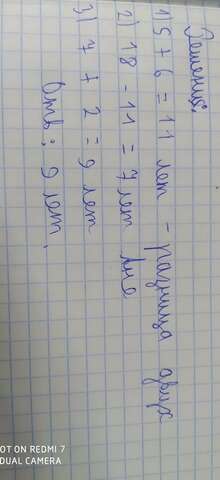 Решение:
1) 5 + 6 = 11 лет - разница двух
2) 18 - 11 = 7 лет Яне
3) 7 + 2 = 9 лет
Отв: 9 лет.
OT ON REDMI 7
DUAL CAMERA